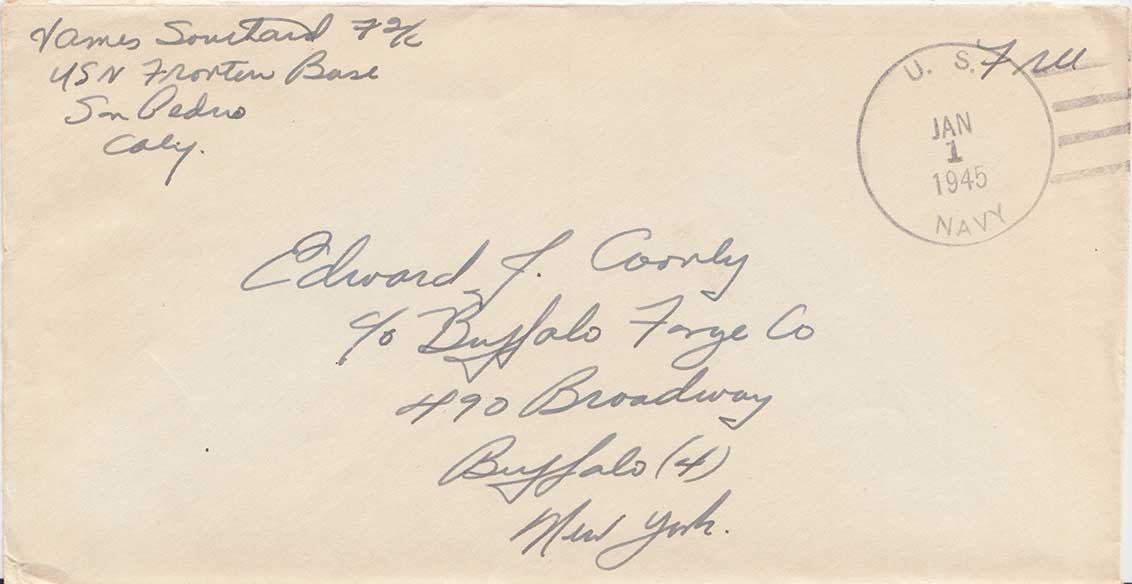 James Southard F2/c
USN Frontier Base
San Pedro
Calif.
Free
U. S.
JAN
1
1945
NAVY
Edward J.
c/o Buffalo Forge Co
490 Broadway
Buffalo (4)
New York.